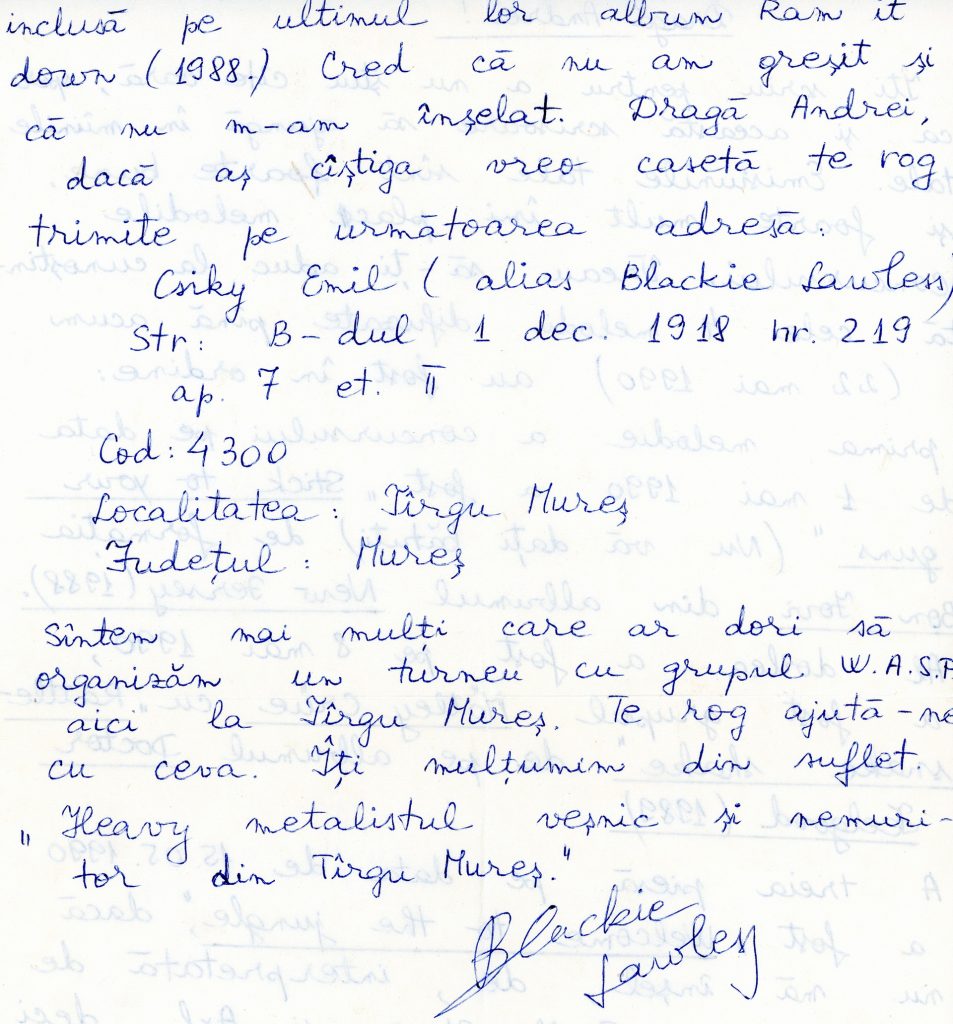 inclusă pe ultimul lor album Ram it
down (1988.) Cred că nu am greșit și
că nu m-am înșelat. Dragă Andrei,
dacă aș cîștiga vreo casetă te rog
trimite pe următoarea adresă:
Csiky Emil ( alias Blackie Lawless)
Str: B-dul 1 dec. 1918 nr. 219
ap. 7 et. II
Cod: 4300
Localitatea : Tîrgu Mureș
Județul : Mureș
Sîntem mai mulți care ar dori să
organizăm un turneu cu grupul W.A.S.P
aici la Tîrgu Mureș. Te rog ajută-ne
cu ceva. Îți mulțumim din suflet.
"Heavy metalistul veșnic și nemuri-
tor din Tîrgu Mureș."
Blackie
Lawless